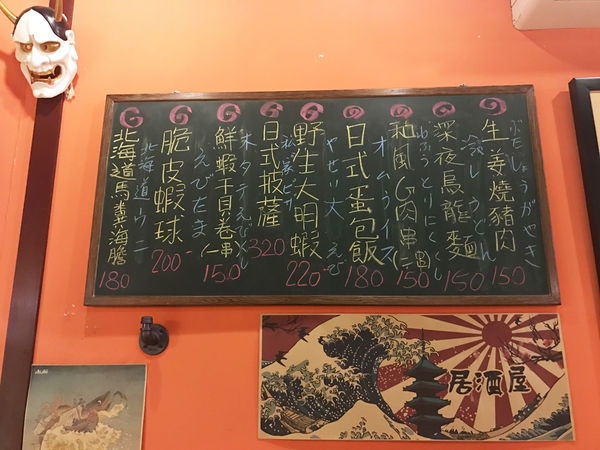 生姜燒豬肉
ぶたしょうがやき
150
深夜烏龍麵
冷しうどん
150
和風G肉串(二串)
わふうとりにくくし
150
日式蛋包飯
オムライス
180
野生大明蝦
やせい大えび
220-
日式披薩
ピザ
320
鮮蝦干貝卷(一串)
ホタテえびくし
150
脆皮蝦球
えびたま
200-
北海道馬糞海膽
北海道ウニ
180
居酒屋
Asahi